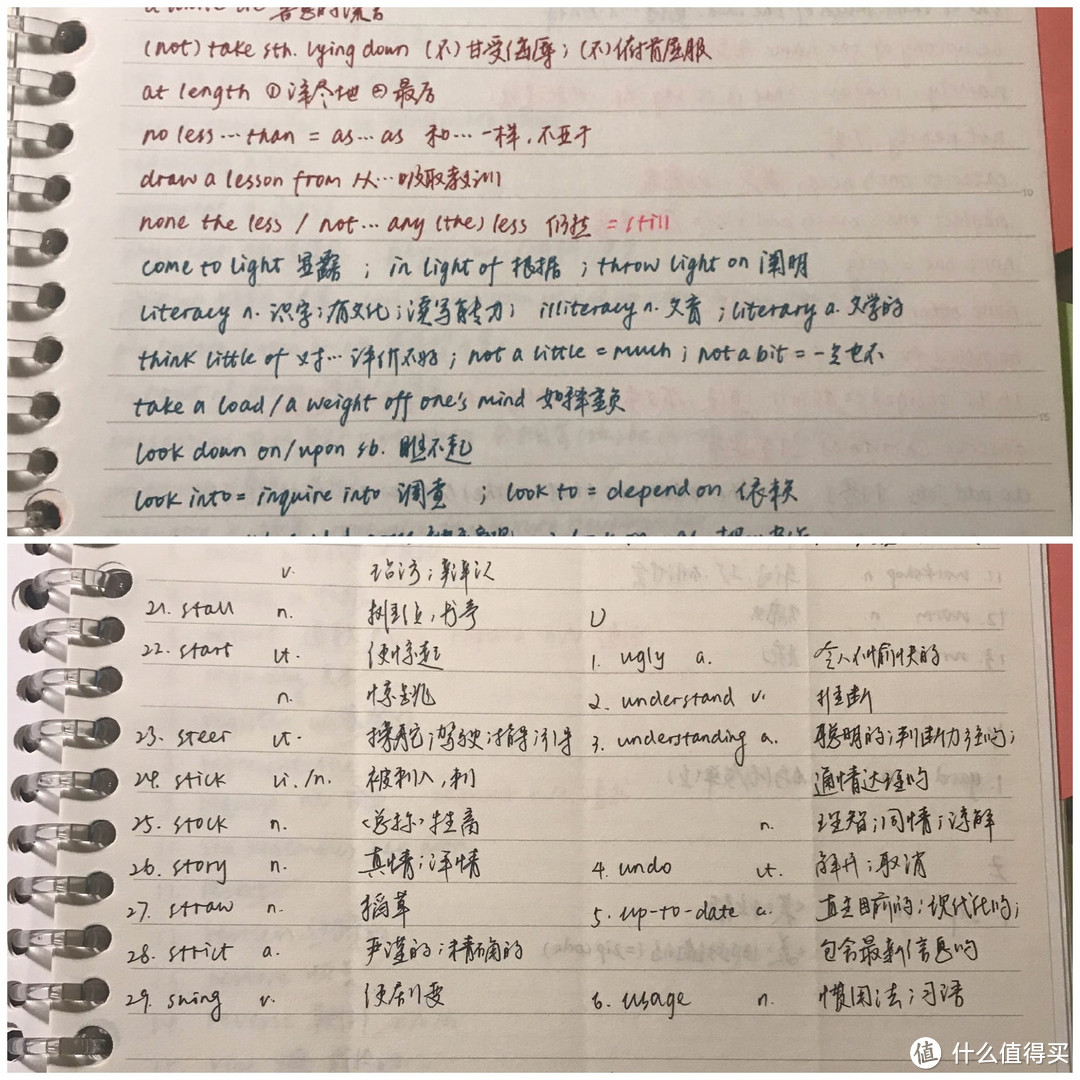 a white lie 善意的流言
(not) take sth. lying down (不)甘受侮辱；(不)俯首屈服
at length ①详尽地 ②最后
no less…than = as…as 和…一样，不亚于
draw a lesson from 从…吸取教训
none the less / not…any (the) less 仍然 = still
come to light 显露；in light of 根据；throw light on 阐明
literacy n. 识字；有文化；读写能力；illiteracy n. 文盲；literary a. 文学的
think little of 对…评价不好；not a little = much；not a bit = 一点也不
take a load/a weight off one's mind 如释重负
look down on/upon sb. 瞧不起
look into = inquire into 调查；look to = depend on 依赖
v. 辩认
21. stall n. 摊位，书亭
22. start vt. 使惊起
n. 惊跳
23. steer vt. 操舵；驾驶；指导；引导
24. stick vi./n. 被刺入，刺
25. stock n. <总称>牲畜
26. story n. 真情；详情
27. straw n. 稻草
28. strict a. 严谨的；精确的
29. swing v. 使剧变
U
1. ugly a. 令人不愉快的
2. understand v. 推断
3. understanding a. 聪明的；判断力强的；
通情达理的
n. 理智；同情；谅解
4. undo vt. 解开；取消
5. up-to-date a. 直至目前的；现代化的；
包含最新信息的
6. usage n. 惯用法；习语
值 什么值得买